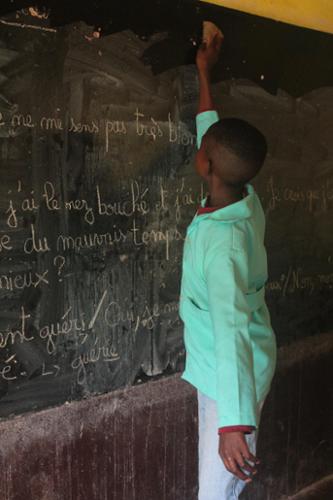 e me me sens pas très bien
j'ai le nez bouché et j'ai Je crois que
du mauvais temps
mieux ? Non
guéri / Oui, je
é. ↳ guérie